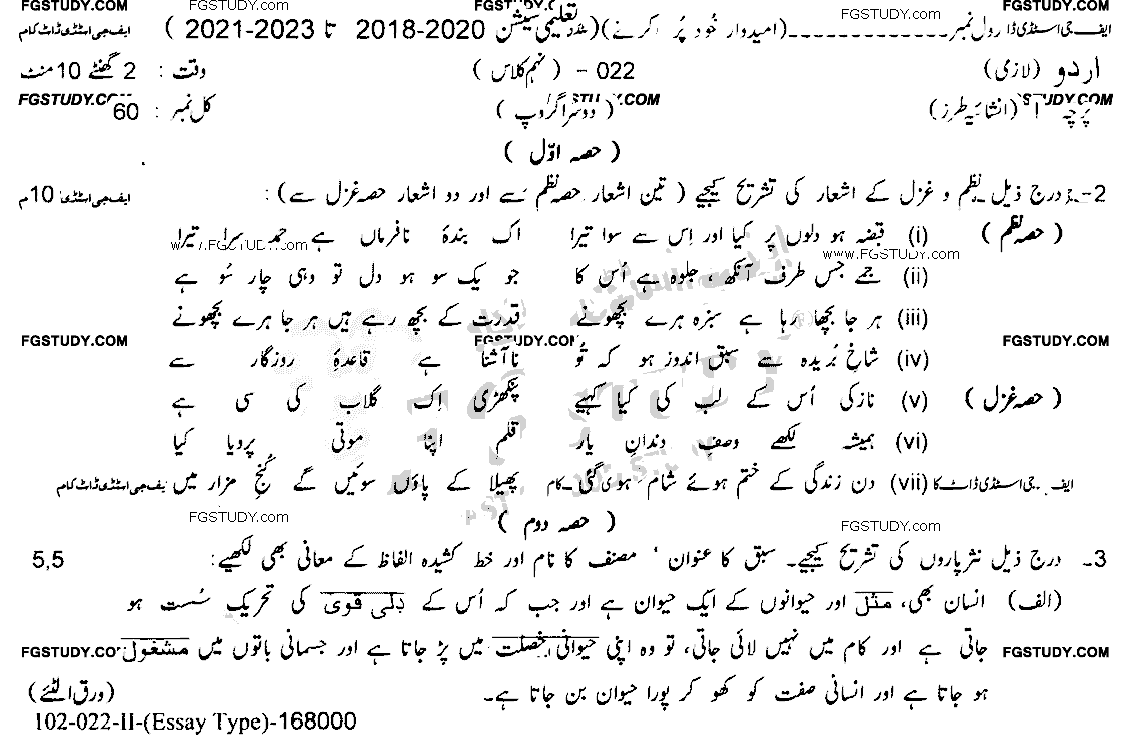 FGSTUDY.COM FGSTUDY.com FGSTUDY.COM FGSTUDY.com FGSTUDY.COM
ایف جی اسٹڈی ڈا رول نمبر ـــــــــــــ (امیدوار خود پُر کرے) (تعلیمی سیشن 2020-2018 تا 2023-2021 ) ایف جی اسٹڈی ڈاٹ کام
اردو (لازمی) 022 - (نہم کلاس) وقت : 2 گھنٹے 10 منٹ
پرچہ I (انشائیہ طرز) (دوسرا گروپ) کل نمبر : 60
FGSTUDY.COM FGSTUDY.COM FGSTUDY.COM
( حصہ اوّل )
2- درج ذیل نظم و غزل کے اشعار کی تشریح کیجیے ( تین اشعار حصہ نظم سے اور دو اشعار حصہ غزل سے ) : 10 ایف جی اسٹڈی
( حصہ نظم ) (i) قبضہ ہو دلوں پر کیا اور اِس سے سوا تیرا اک بندۂ نافرماں ہے حمد سرا تیرا
www.FGSTUDY.com www.FGSTUDY.com
(ii) جمے جس طرف آنکھ ، جلوہ ہے اُس کا جو یک سو ہو دل تو وہی چار سُو ہے
(iii) ہر جا بچھا رہا ہے سبزہ ہرے بچھونے قدرت کے بچھ رہے ہیں ہر جا ہرے بچھونے
FGSTUDY.COM FGSTUDY.COM FGSTUDY.COM
(iv) شاخِ بُریدہ سے سبق اندوز ہو کہ تُو ناآشنا ہے قاعدۂ روزگار سے
( حصہ غزل ) (v) نازکی اُس کے لب کی کیا کہیے پنکھڑی اِک گلاب کی سی ہے
(vi) ہمیشہ لکھے وصفِ دندانِ یار قلم اپنا موتی پرویا کیا
ایف جی اسٹڈی ڈاٹ کا (vii) دن زندگی کے ختم ہوئے شام ہو گئی کام پھیلا کے پاؤں سوئیں گے کُنجِ مزار میں ایف جی اسٹڈی ڈاٹ کام
FGSTUDY.com ( حصہ دوم ) FGSTUDY.com
3- درج ذیل نثرپاروں کی تشریح کیجیے۔ سبق کا عنوان ' مصنف کا نام اور خط کشیدہ الفاظ کے معانی بھی لکھیے : 5,5
(الف) انسان بھی، مثل اور حیوانوں کے ایک حیوان ہے اور جب کہ اُس کے دلی قویٰ کی تحریک سُست ہو
جاتی ہے اور کام میں نہیں لائی جاتی، تو وہ اپنی حیوانی خصلت میں پڑ جاتا ہے اور جسمانی باتوں میں مشغول
FGSTUDY.COM FGSTUDY.COM
ہو جاتا ہے اور انسانی صفت کو کھو کر پورا حیوان بن جاتا ہے۔
(ورق الٹئے)
102-022-II-(Essay Type)-168000